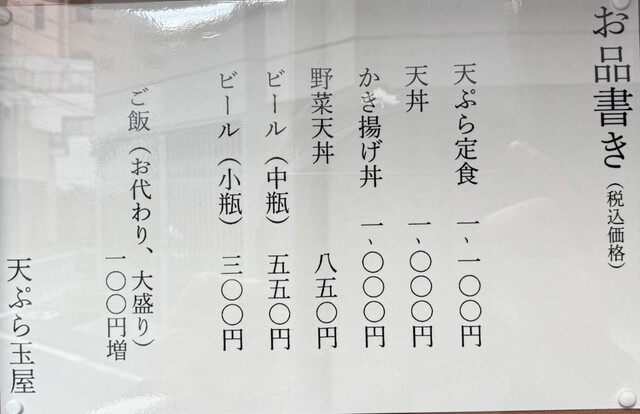 お品書き（税込価格）
天ぷら定食　一、一〇〇円
天丼　一、〇〇〇円
かき揚げ丼　一、〇〇〇円
野菜天丼　八五〇円
ビール（中瓶）　五五〇円
ビール（小瓶）　三〇〇円
ご飯（お代わり、大盛り）
一〇〇円増
天ぷら玉屋